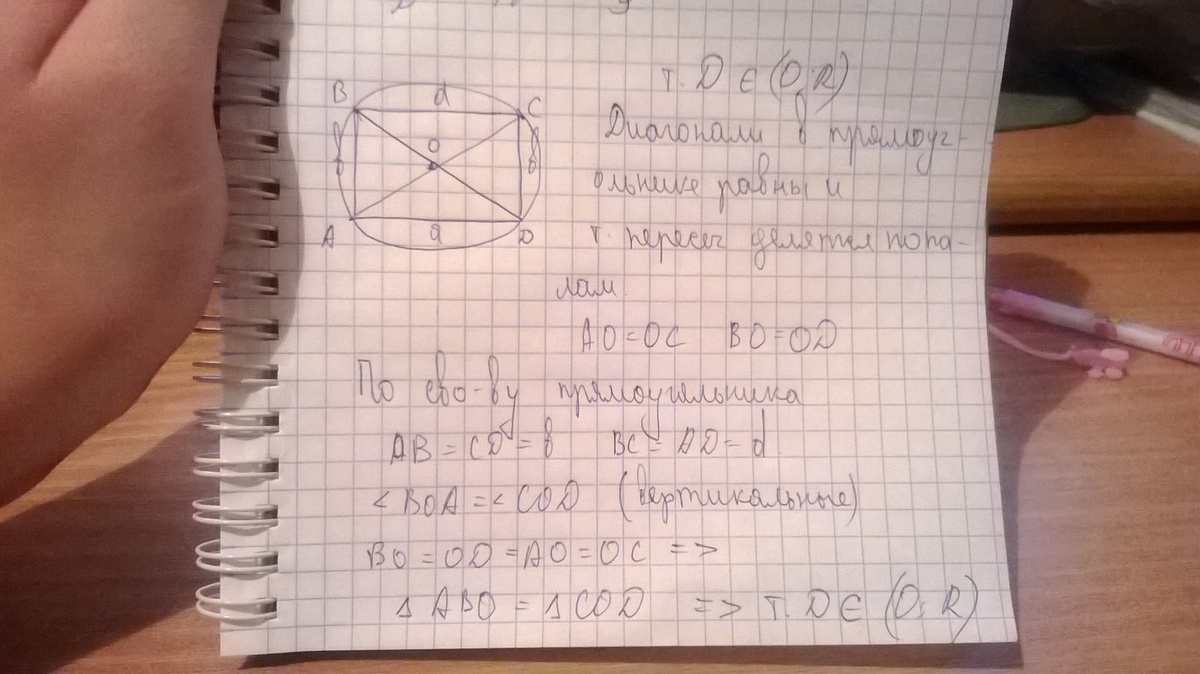 т. D ∈ (O; R)
B d C
b O b
A a D
Диагонали в прямоуг-
ольнике равны и
т. пересеч делятся попо-
лам.
AO = OC BO = OD
По сво-ву прямоугольника
AB = CD = b BC = AD = d
< BOA = < COD (вертикальные)
BO = OD = AO = OC =>
△ ABO = △ COD => т. D ∈ (O; R)